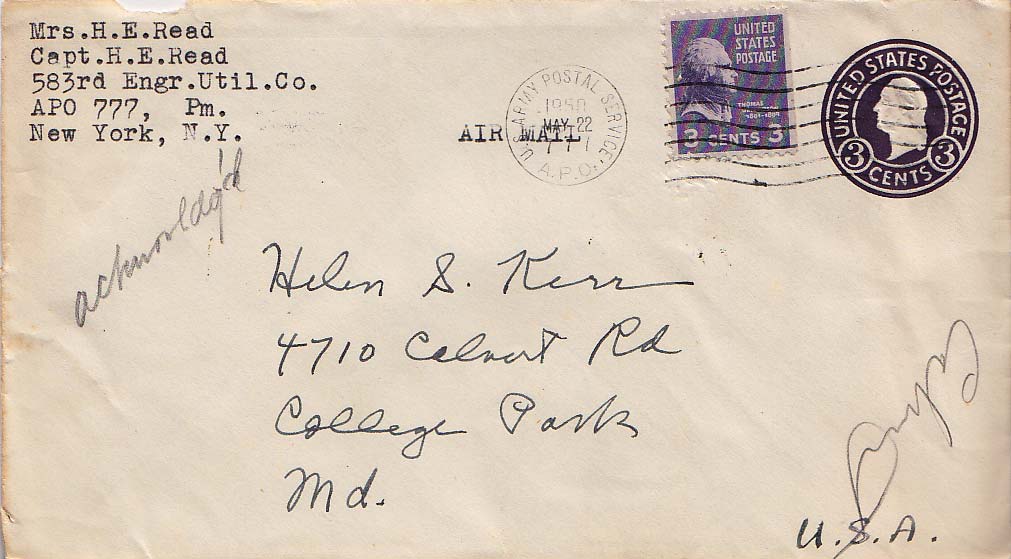 Mrs.H.E.Read
Capt.H.E.Read
583rd Engr.Util.Co.
APO 777, Pm.
New York, N.Y.
AIR MAIL
U.S. ARMY POSTAL SERVICE
1950
MAY 22
777
A.P.O.
UNITED
STATES
POSTAGE
THOMAS
1801-1809
3 CENTS 3
UNITED STATES POSTAGE
3 CENTS 3
acknowld'g'd
Helen S. Kerr
4710 Calvert Rd
College Park
Md.
U.S.A.